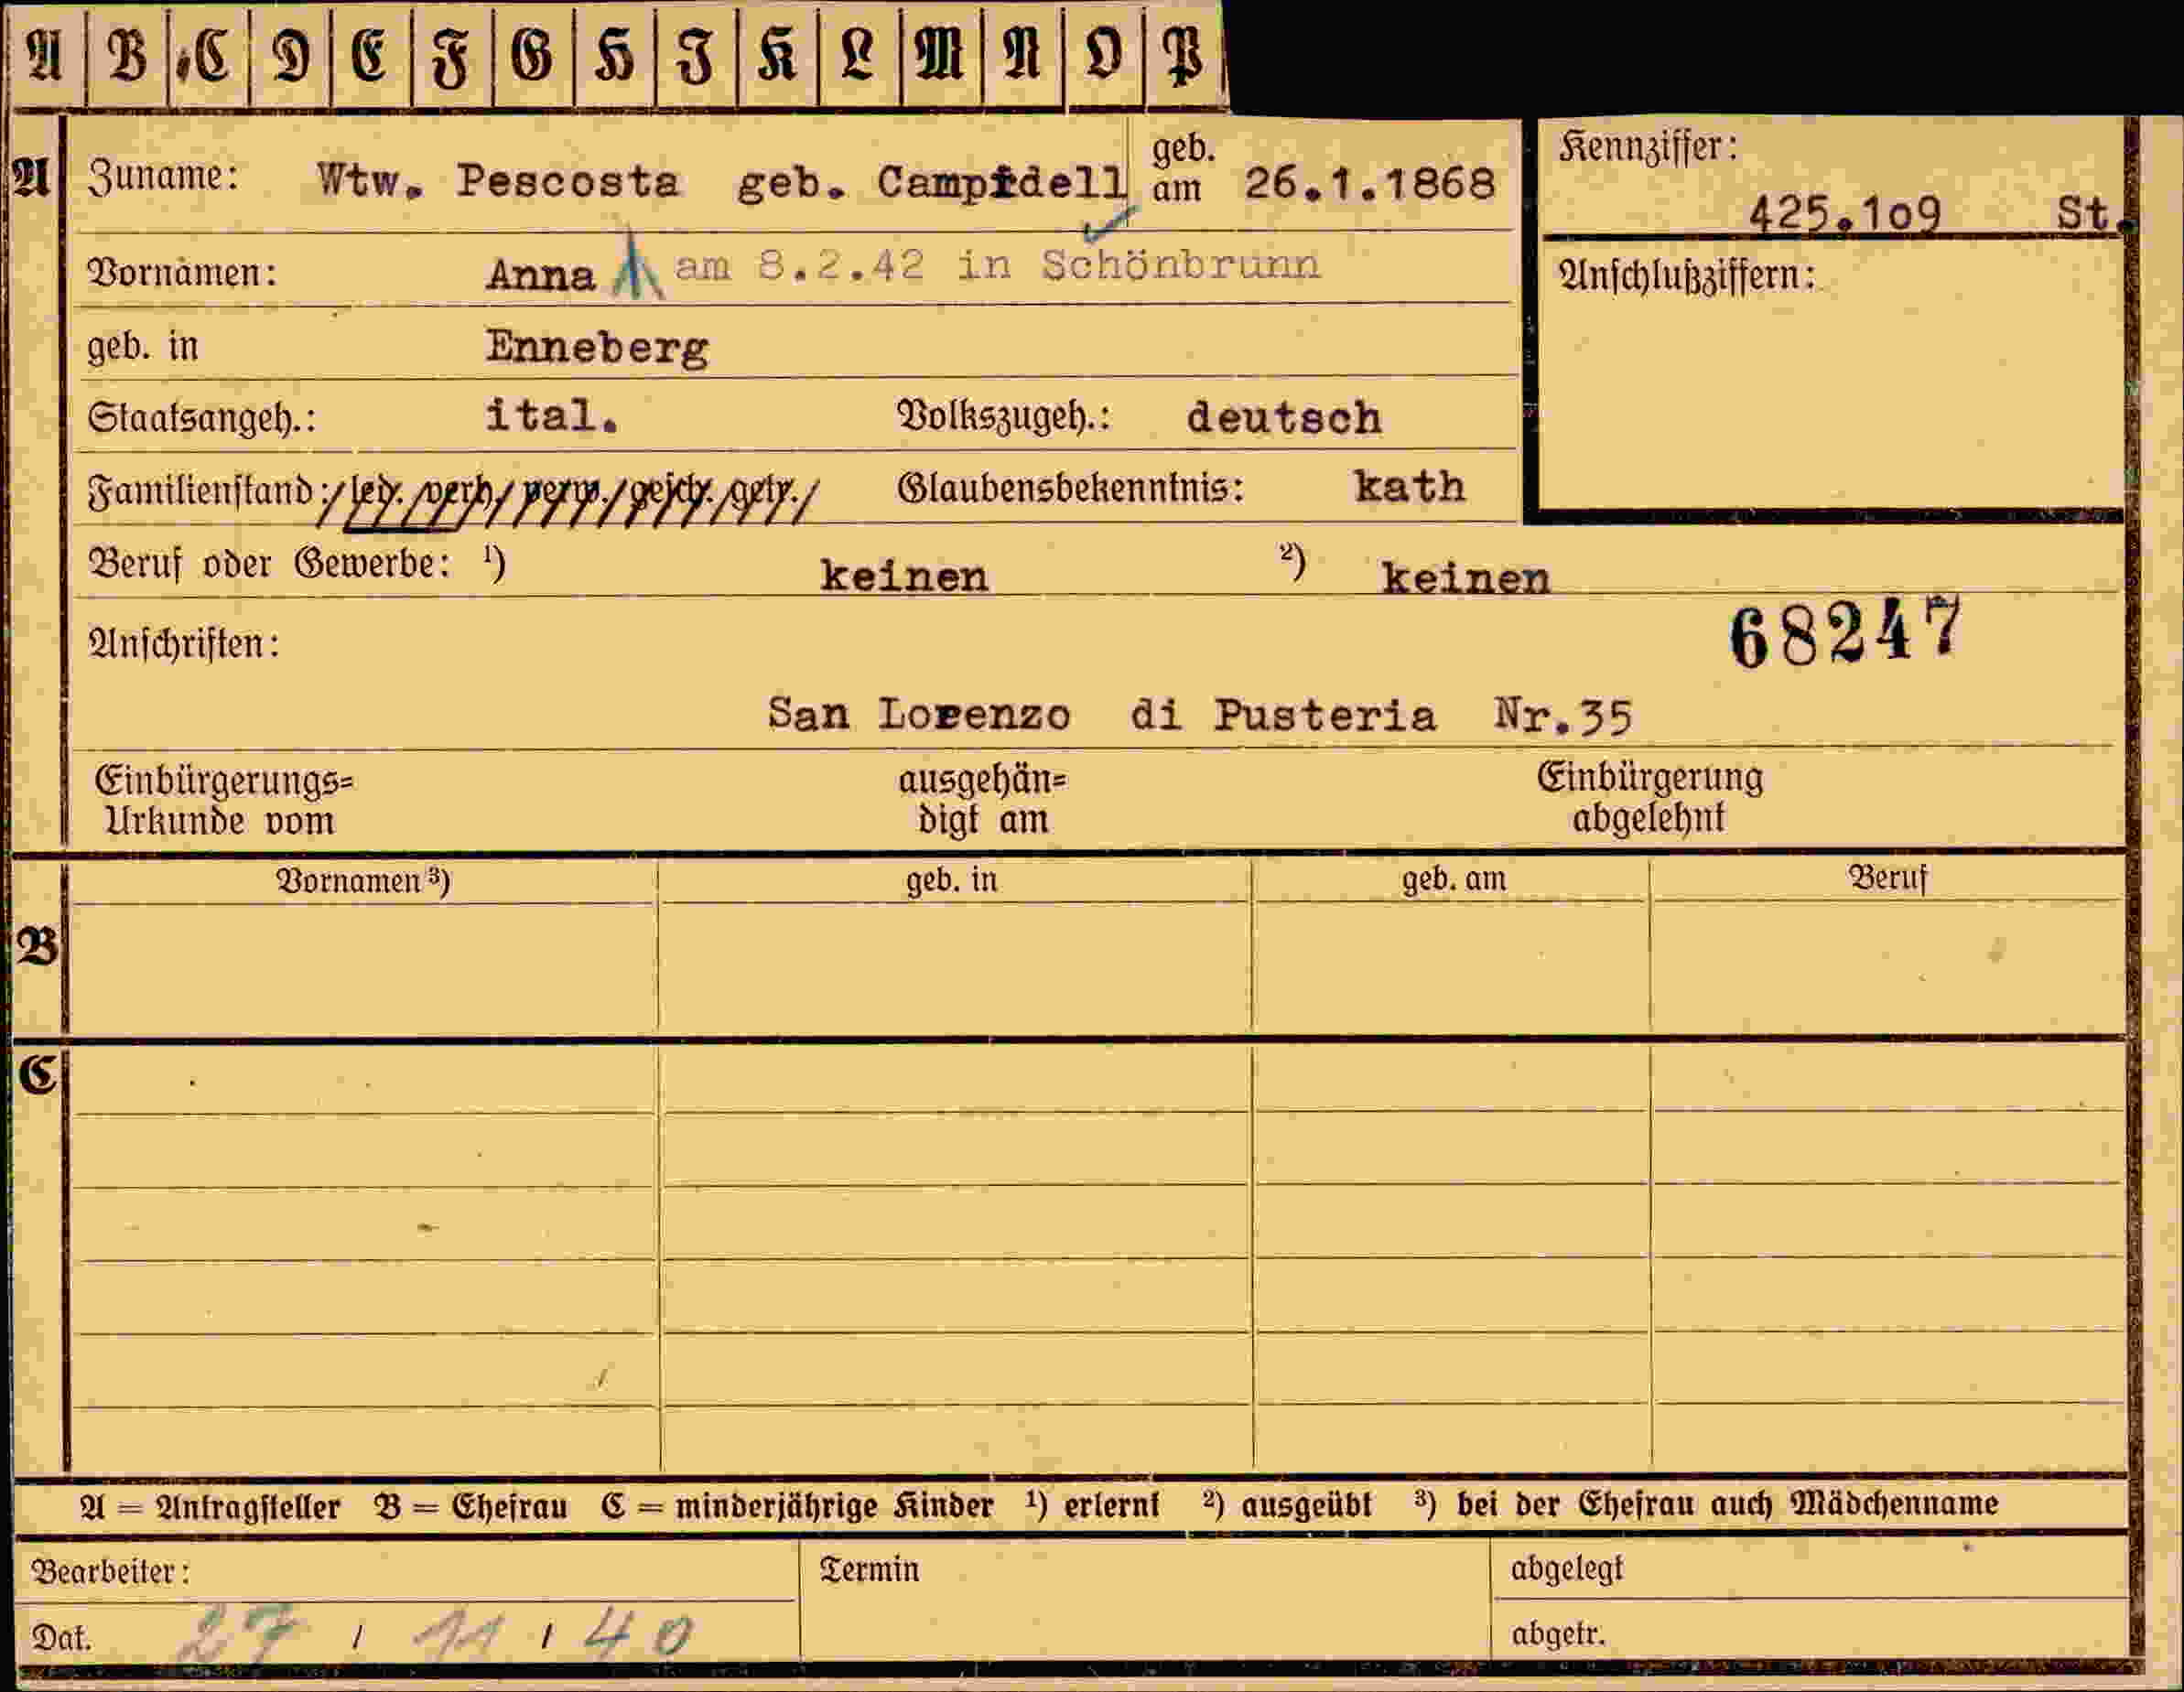 A B C D E F G H I K L M N O P
A Zuname: Wtw. Pescosta geb. Campidell geb. am 26.1.1868
Kennziffer:
425.1o9 St.
Vornamen: Anna am 8.2.42 in Schönbrunn
Anschlußziffern:
geb. in Enneberg
Staatsangeh.: ital. Volkszugeh.: deutsch
Familienstand: / led. / verh. / verw. / gesch. / getr. / Glaubensbekenntnis: kath
Beruf oder Gewerbe: ¹) keinen ²) keinen
Anschriften: 68247
San Lorenzo di Pusteria Nr.35
Einbürgerungs= ausgehän= Einbürgerung
Urkunde vom digt am abgelehnt
Vornamen ³) geb. in geb. am Beruf
B
C
A = Antragsteller B = Ehefrau C = minderjährige Kinder ¹) erlernt ²) ausgeübt ³) bei der Ehefrau auch Mädchenname
Bearbeiter: Termin abgelegt
Dat. 27 / 11 / 40 abgetr.